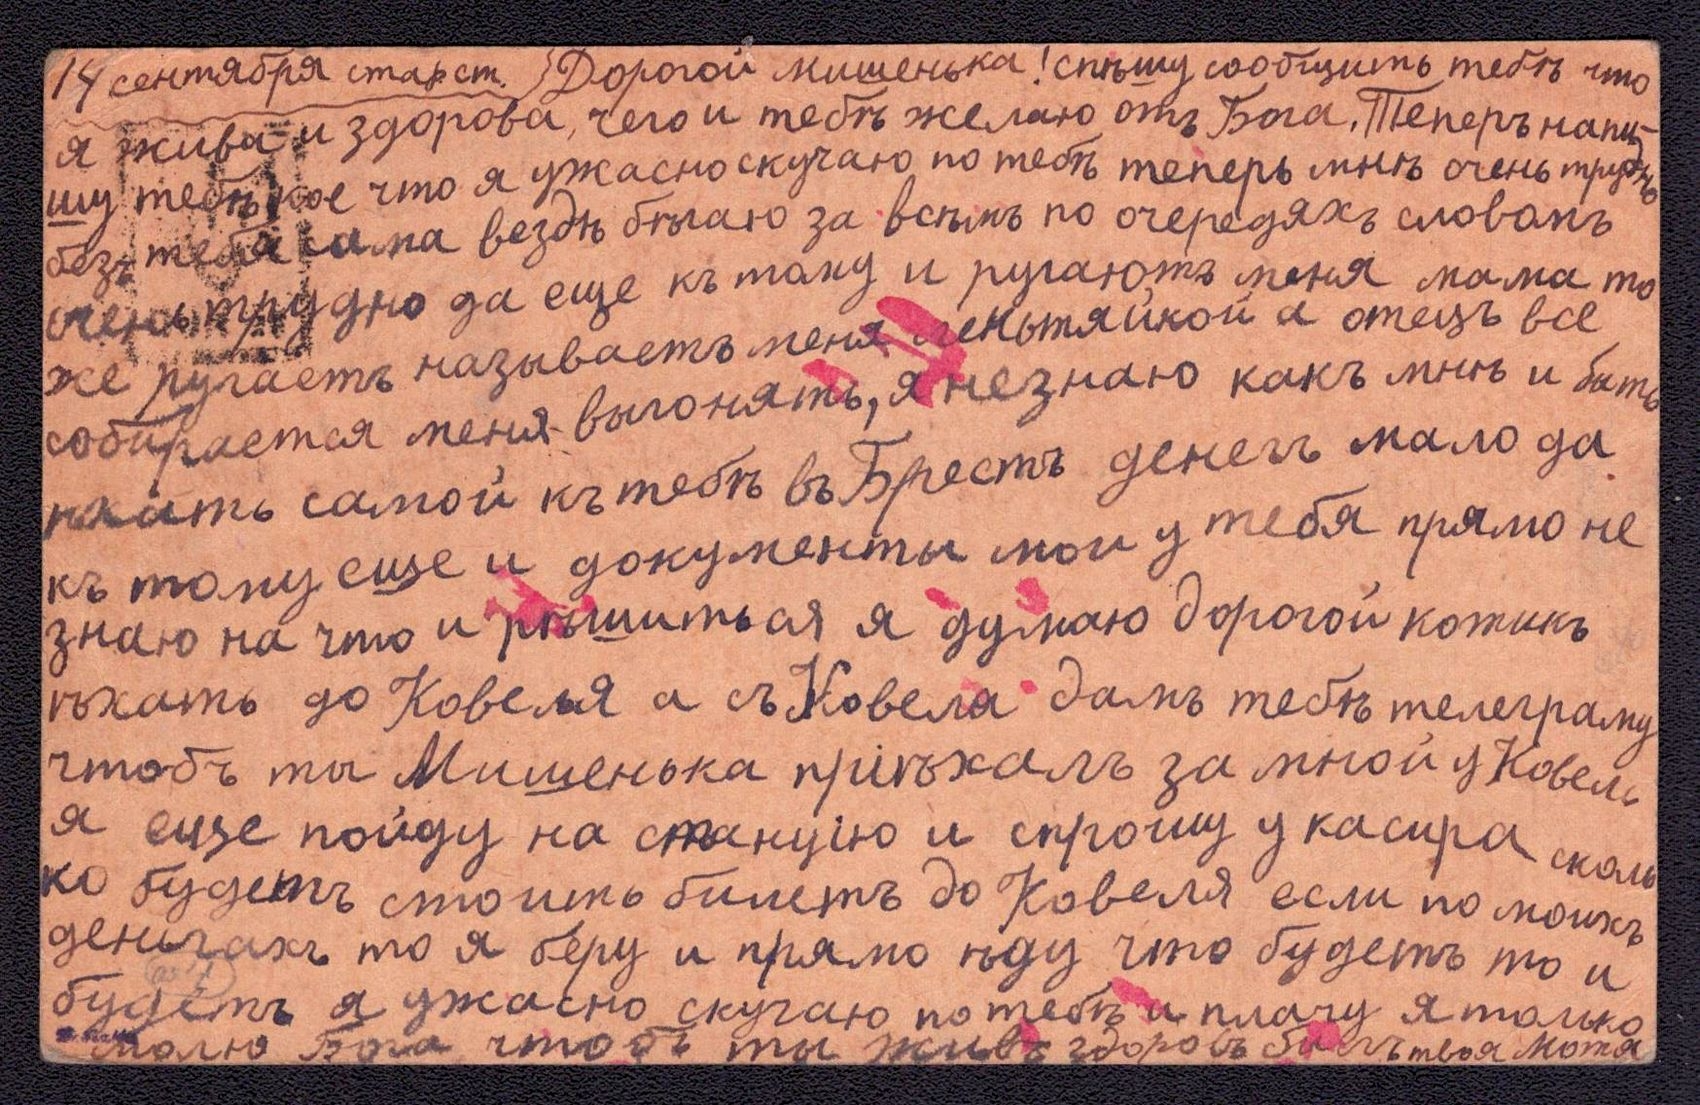 14 сентября стар ст. Дорогой Мишенька! спѣшу сообщить тебѣ что
я жива и здорова, чего и тебѣ желаю отъ Бога. Теперъ напи-
шу тебѣ кое что я ужасно скучаю по тебѣ теперь мнѣ очень трудно
безъ тебя сама вездѣ бѣгаю за всѣмъ по очередяхъ словомъ
очень трудно да еще къ тому и ругаютъ меня мама то
же ругаетъ называетъ меня леньтяйкой а отецъ все
собирается меня выгонять, я незнаю какъ мнѣ и быть
ѣхать самой къ тебѣ въ Брестъ денегъ мало да
къ тому еще и документы мои у тебя прямо не
знаю на что и рѣшиться я думаю дорогой котикъ
ѣхать до Ковеля а съ Ковеля дамъ тебѣ телеграму
чтобъ ты Мишенька пріѣхалъ за мной у Ковель
я еще пойду на станцію и спрошу у касира сколь
ко будетъ стоить билетъ до Ковеля если по моихъ
деньгахъ то я беру и прямо ѣду что будетъ то и
будетъ я ужасно скучаю по тебѣ и плачу я только
молю Бога чтобъ ты живъ здоровъ былъ твоя Мотя